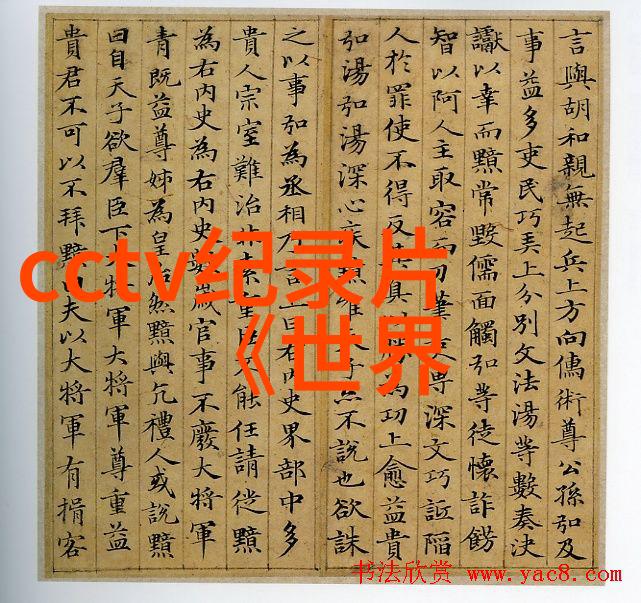 言與胡和親無起兵上方向儒術尊公孫弘及
事益多吏民巧弄上分別文法湯等數奏決
讞以幸而黯常毀儒面觸弘等徒懷詐飾
智以阿人主取容而刀筆吏專深文巧詆陷
人於罪使不得反其真以勝為功上愈益貴
弘湯弘湯深心疾黯唯天子亦不說也欲誅
之以事弘為丞相乃言上曰右內史界部中多
貴人宗室難治非素重臣不能任請徙黯
為右內史為右內史數歲官事不廢大將軍
青既益尊姊為皇后然黯與亢禮人或說黯
曰自天子欲羣臣下大將軍大將軍尊重益
貴君不可以不拜黯曰夫以大將軍有揖客
cctv纪录片
《世界
书法欣赏 www.yac8.com